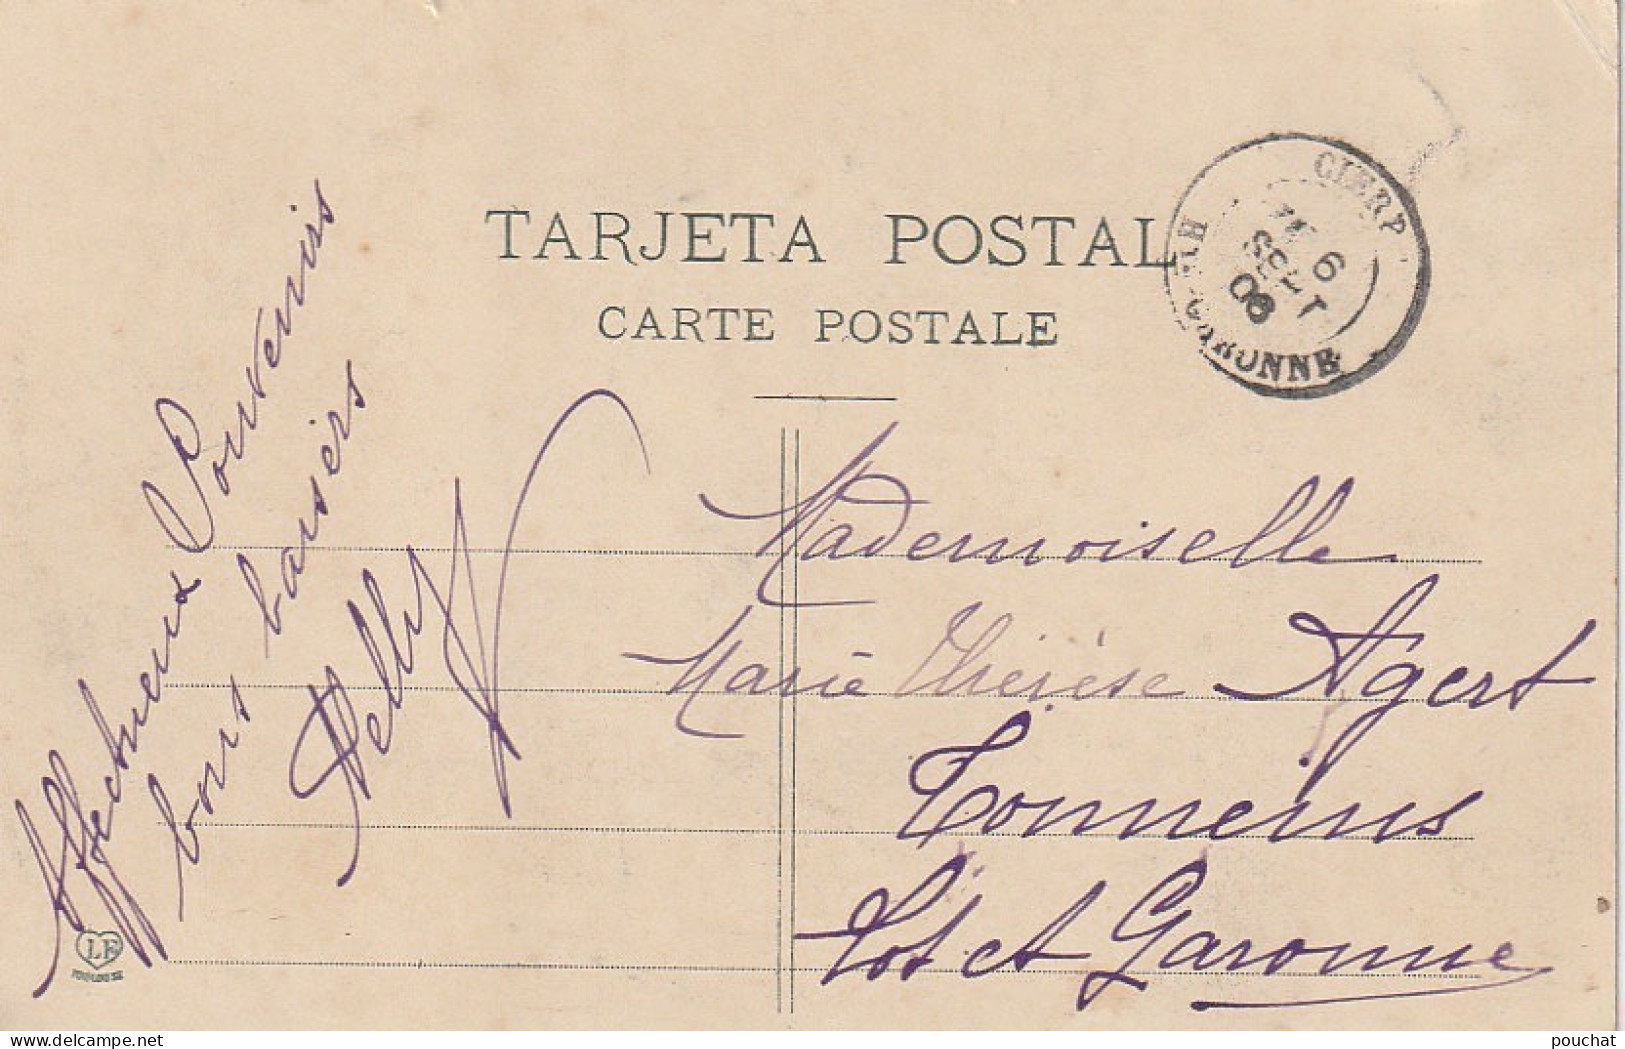 TARJETA POSTAL
CARTE POSTALE
CIERP
6
SEPT
HTE GARONNE
Affectueux Souvenirs
bons baisers
Nelly
Mademoiselle
Marie Thérèse Agert
Tonneins
Lot et Garonne
LF
TOULOUSE
delcampe.net
pouchat